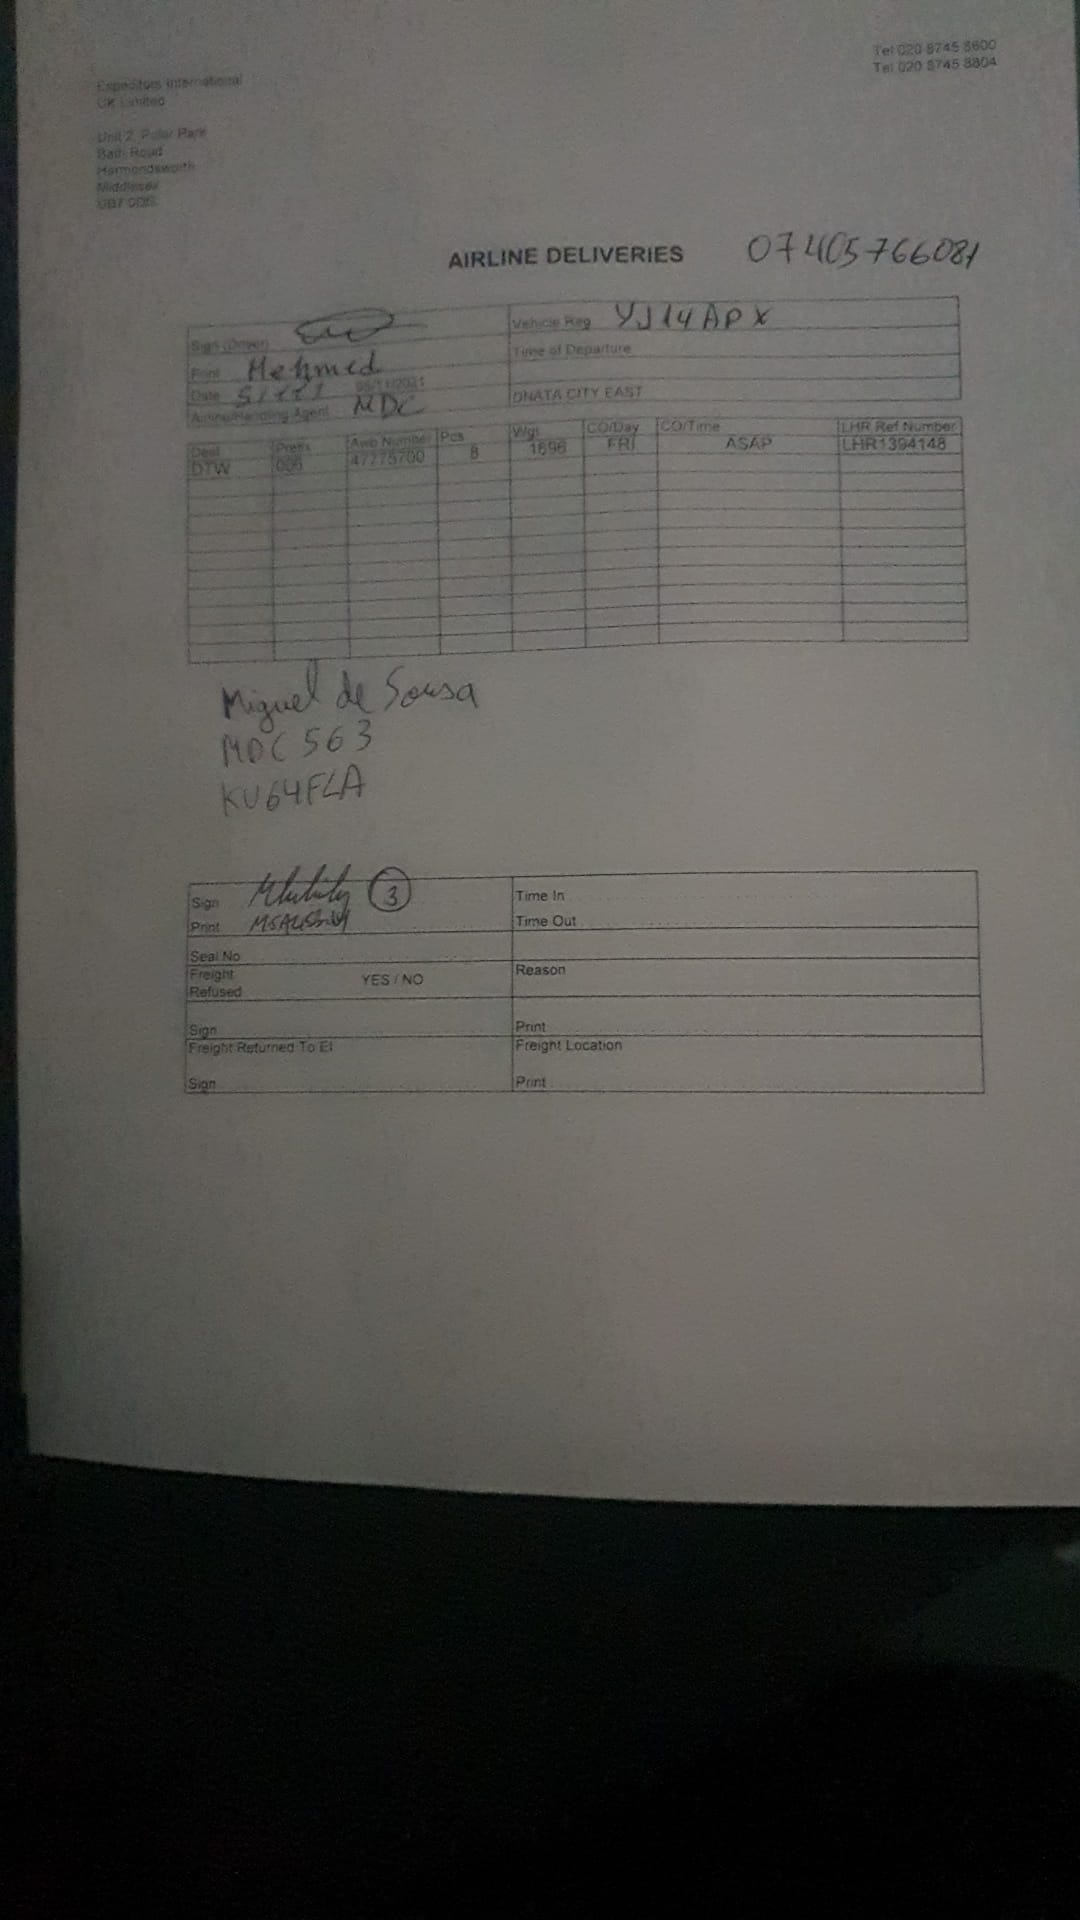 Tel 020 8745 8600
Tel 020 8745 8804
Expeditors International
UK Limited
Unit 2, Polar Park
Bath Road
Harmondsworth
Middlesex
UB7
AIRLINE DELIVERIES 07405766081
Sign (Driver) Vehicle Reg YJ14APX
Print Mehmed Time of Departure
Date 05/11/2021
Airline/Handling Agent MDC DNATA CITY EAST
Dest Prefix Awb Number Pcs Wgt CO/Day CO/Time LHR Ref Number
DTW 006 47775700 8 1696 FRI ASAP LHR1394148
Miguel de Sousa
MDC 563
KU64FLA
Sign 3 Time In
Print Time Out
Seal No
Freight Refused YES / NO Reason
Sign Print
Freight Returned To EI Freight Location
Sign Print